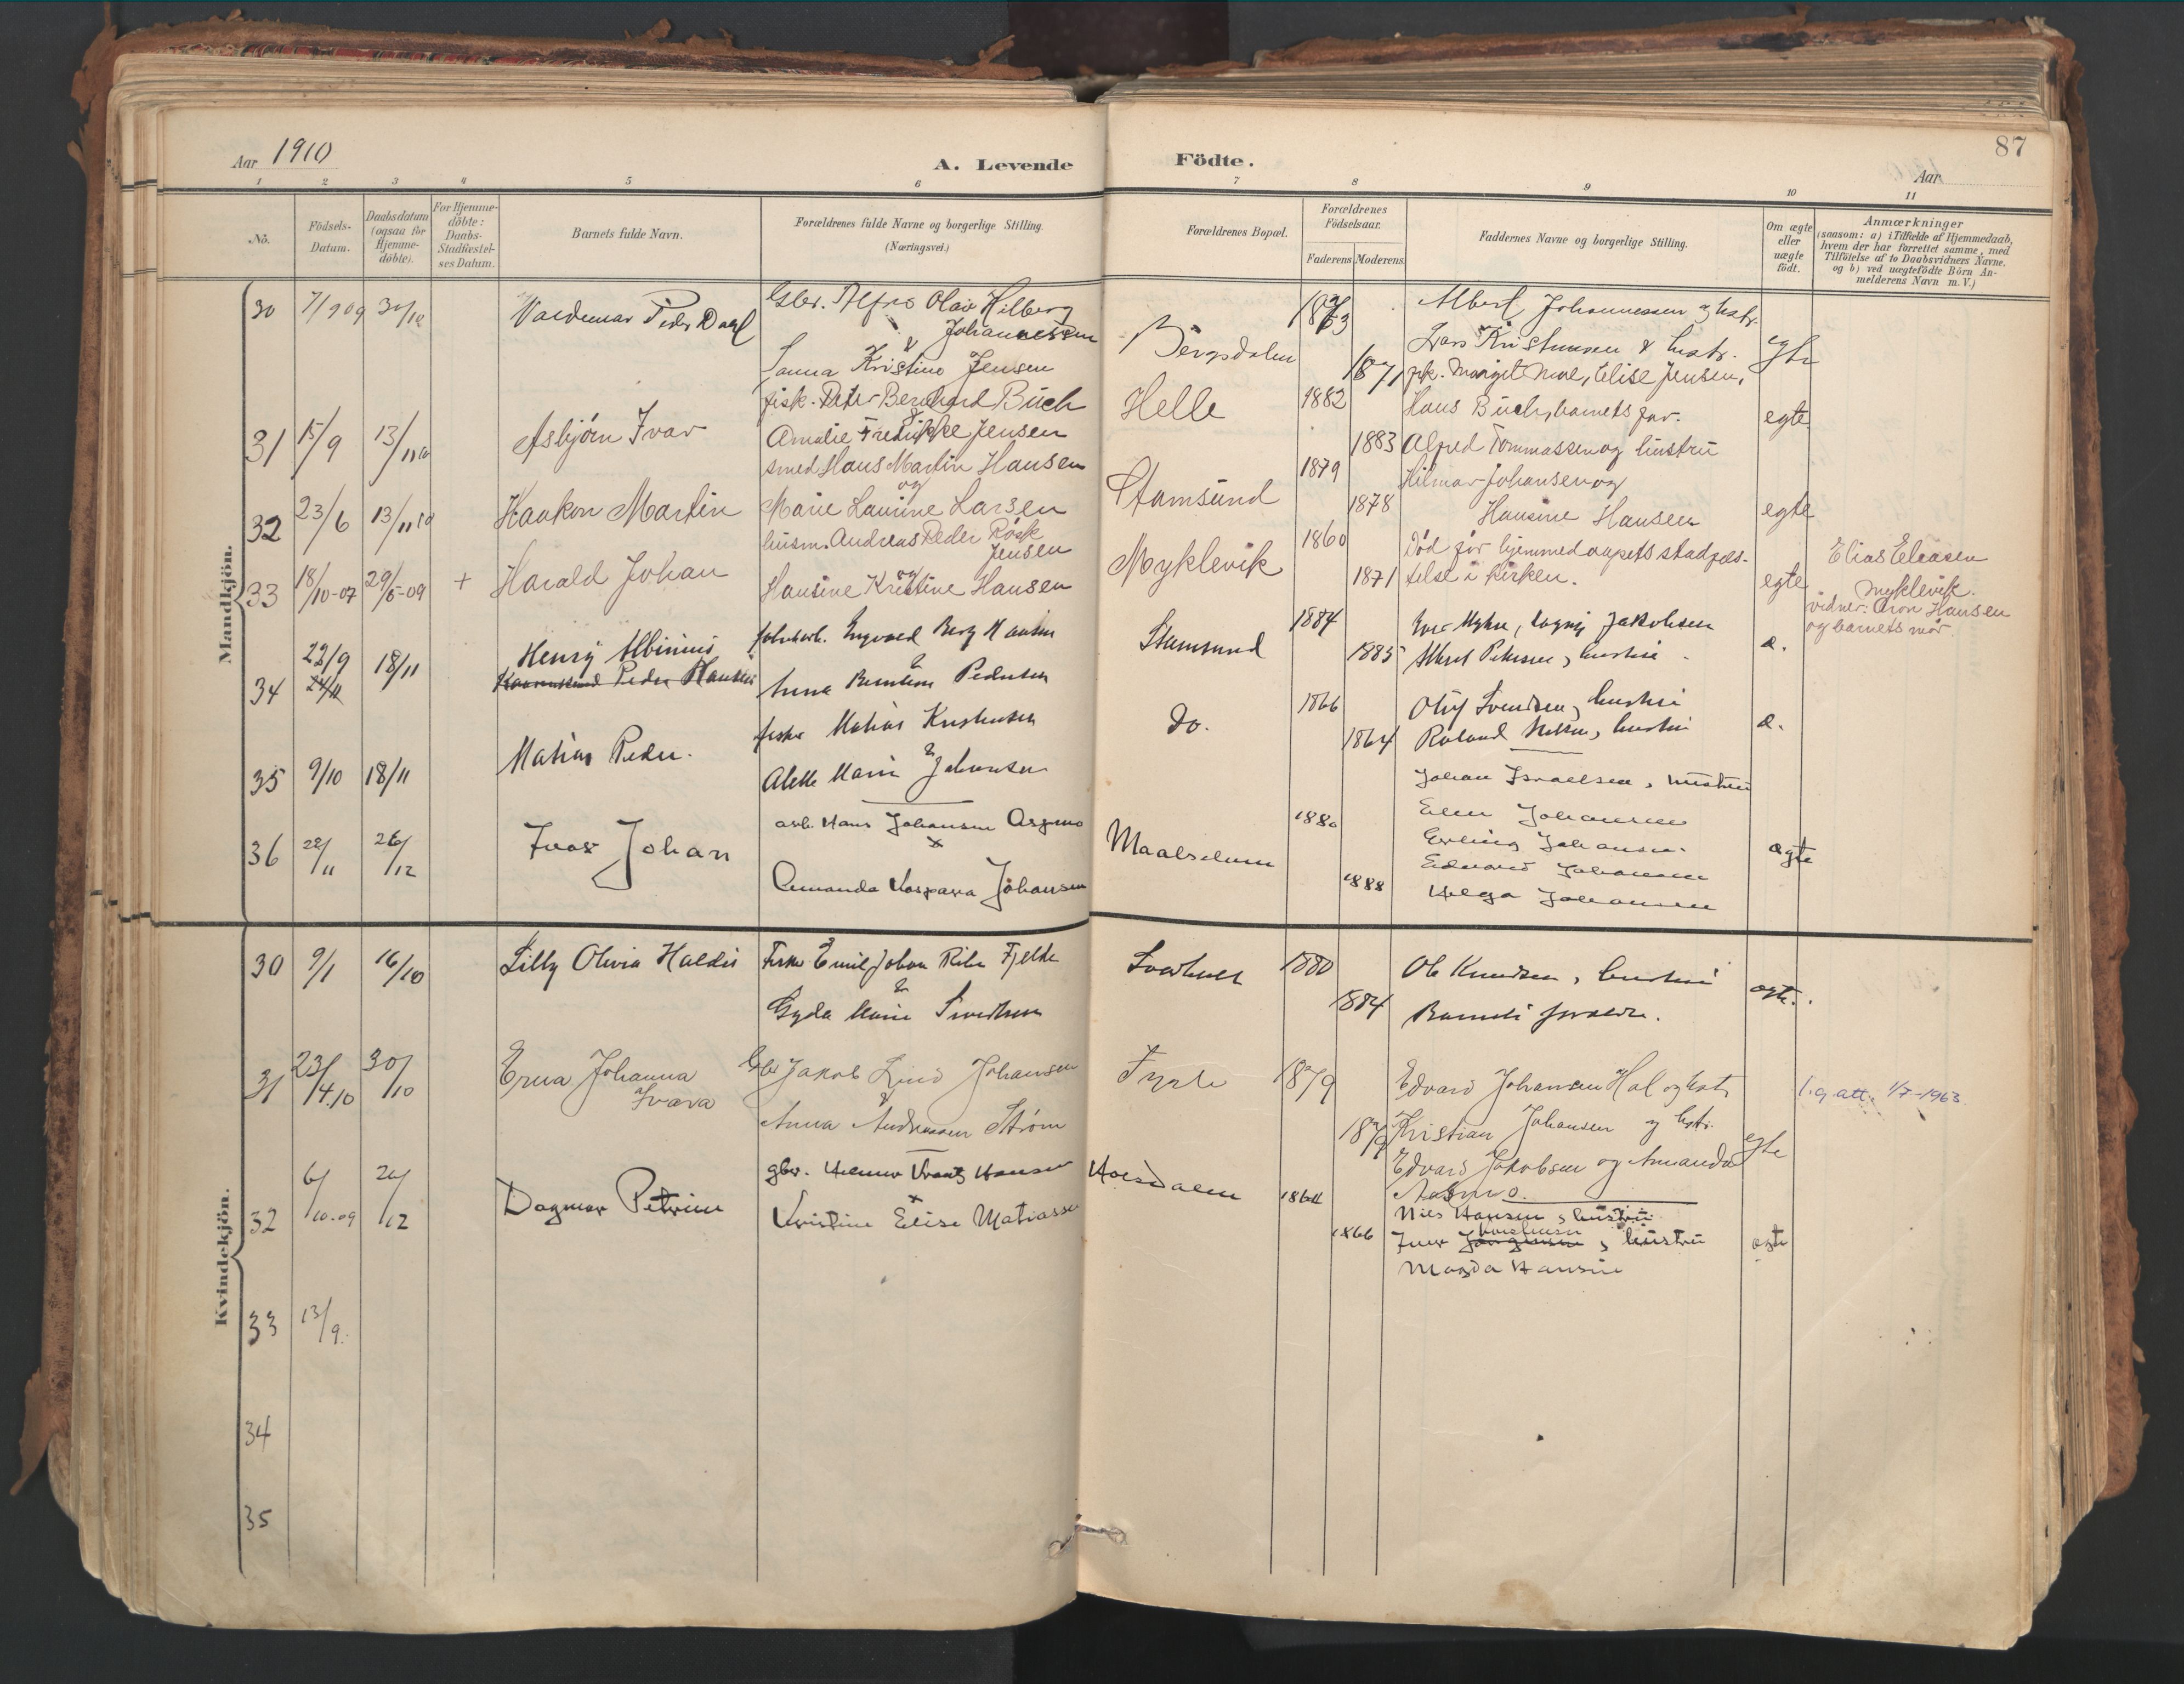 Aar 1910
A. Levende Födte.
87
Aar
1 2 3 4 5 6 7 8 9 10 11
No.
Födsels-Datum.
Daabsdatum (ogsaa for Hjemme-döbte).
For Hjemme-döbte: Daabs-Stadfæstel-ses Datum.
Barnets fulde Navn.
Forældrenes fulde Navne og borgerlige Stilling. (Næringsvei.)
Forældrenes Bopæl.
Forældrenes Födselsaar.
Faderens Moderens
Faddernes Navne og borgerlige Stilling.
Om ægte eller uægte födt.
Anmærkninger
(saasom: a) i Tilfælde af Hjemmedaab,
hvem der har forrettet samme, med
Tilföielse af to Daabsvidners Navne.
og b) ved uægtefödte Börn An-
melderens Navn m. V.)
Mandkjön.
30 7/9 09 30/10 Valdemar Peder Daal
Gbr. Alfred Olav Hilberg
Johannessen
&
Sanna Kristine Jensen
Bergsdalen
1871
Albert Johannessen og hstr.
Lars Kristensen & hustr.
pk. Margit Moe, Elise Jensen,
egte
31 15/9 13/11 10 Asbjørn Ivar
fisk. Peter Bernhard Buch
&
Amalie Fredrikke Jensen
Helle
1882
1883
Hans Buch, barnets far.
Alfred Tommassen og hustru
egte
32 23/6 13/11 10 Haakon Martin
smed Hans Martin Hansen
og
Marie Laurine Larsen
Stamsund
1879
1878
Hilmar Johansen og
Hansine Hansen
egte
33 18/10-07 29/5-09 + Harald Johan
husm. Andreas Peder Røsk
Jensen
og
Hansine Kristine Hansen
Myklevik
1860
1871
Død før hjemmedaapets stadfæs-
telse i kirken.
egte
Elias Eleasen
Myklevik.
vidner: Aron Hansen
og barnets mor.
34 22/9 18/11 Henry Albinius
Peder Hansen
Ingvald Berg Hansen
&
Anna Pedersen
Stamsund
1884
1885
Jakobsen
Albert Petersen, hustru
æ.
35 9/10 18/11 Matias Peder.
fisker Matias Kristensen
&
Alette Marie Johansen
Do.
1866
1864
Oluf Svendsen, hustru
Roland Nilsen, hustru
æ.
36 22/11 26/12 Ivar Johan
arb. Hans Johansen Aspmo
x
Amanda Kaspara Johansen
1880
1888
Johan Israelsen, hustru
Elen Johansen
Erling Johansen.
Edvard Johansen
Helga Johansen
ægte
Kvindekjön.
30 9/1 16/10 Lilly Olivia Haldis
Fisker Emil Johan Fjelde
&
Gyda Marie Sivertsen
1880
1884
Ole Knudsen, hustru
Barnets forældre.
ægte.
31 23/4.10 30/10 Erna Johanna
Svava
Gbr Jakob Lind Johansen
&
Anna Andreassen Strøm
1879
1879
Edvard Johansen Hol og hstr
Kristian Johansen og hstr.
Edvard Jakobsen og Amanda
Aspmo.
egte
l.g. att. 1/7-1963.
32 6/10-09 26/12 Dagmar Petrine
gbr. Hilmar Hansen
x
Kristine Elise Matiassen
Holsdalen
1864
1866
Nils Hansen, hustru
Ivar Jørgensen, hustru
Magda Hansine
ægte
33 13/9.
34
35